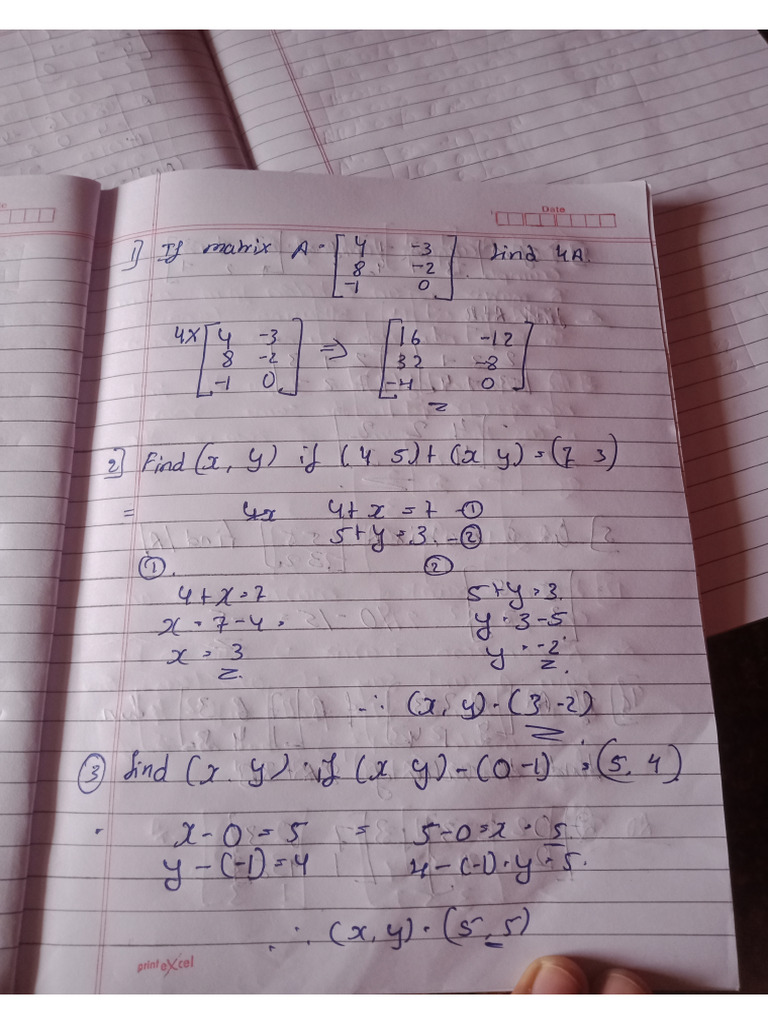 Date
1) If matrix A = [4 -3
8 -2
-1 0]. find 4A.
4x [4 -3 ⇒ [16 -12
8 -2 32 -8
-1 0] -4 0]
2) Find (x, y) if (4 5) + (x y) = (7 3)
= 4x 4 + x = 7 - ①
5 + y = 3. - ②
①. ②
4 + x = 7 5 + y = 3.
x = 7 - 4 = y = 3 - 5
x = 3 y = -2
∴ (x, y) = (3 -2)
③ find (x y) if (x y) - (0 -1) = (5, 4)
x - 0 = 5 = 5 - 0 = x = 5
y - (-1) = 4 4 - (-1) = y = 5.
∴ (x, y) = (5, 5)
printeXcel